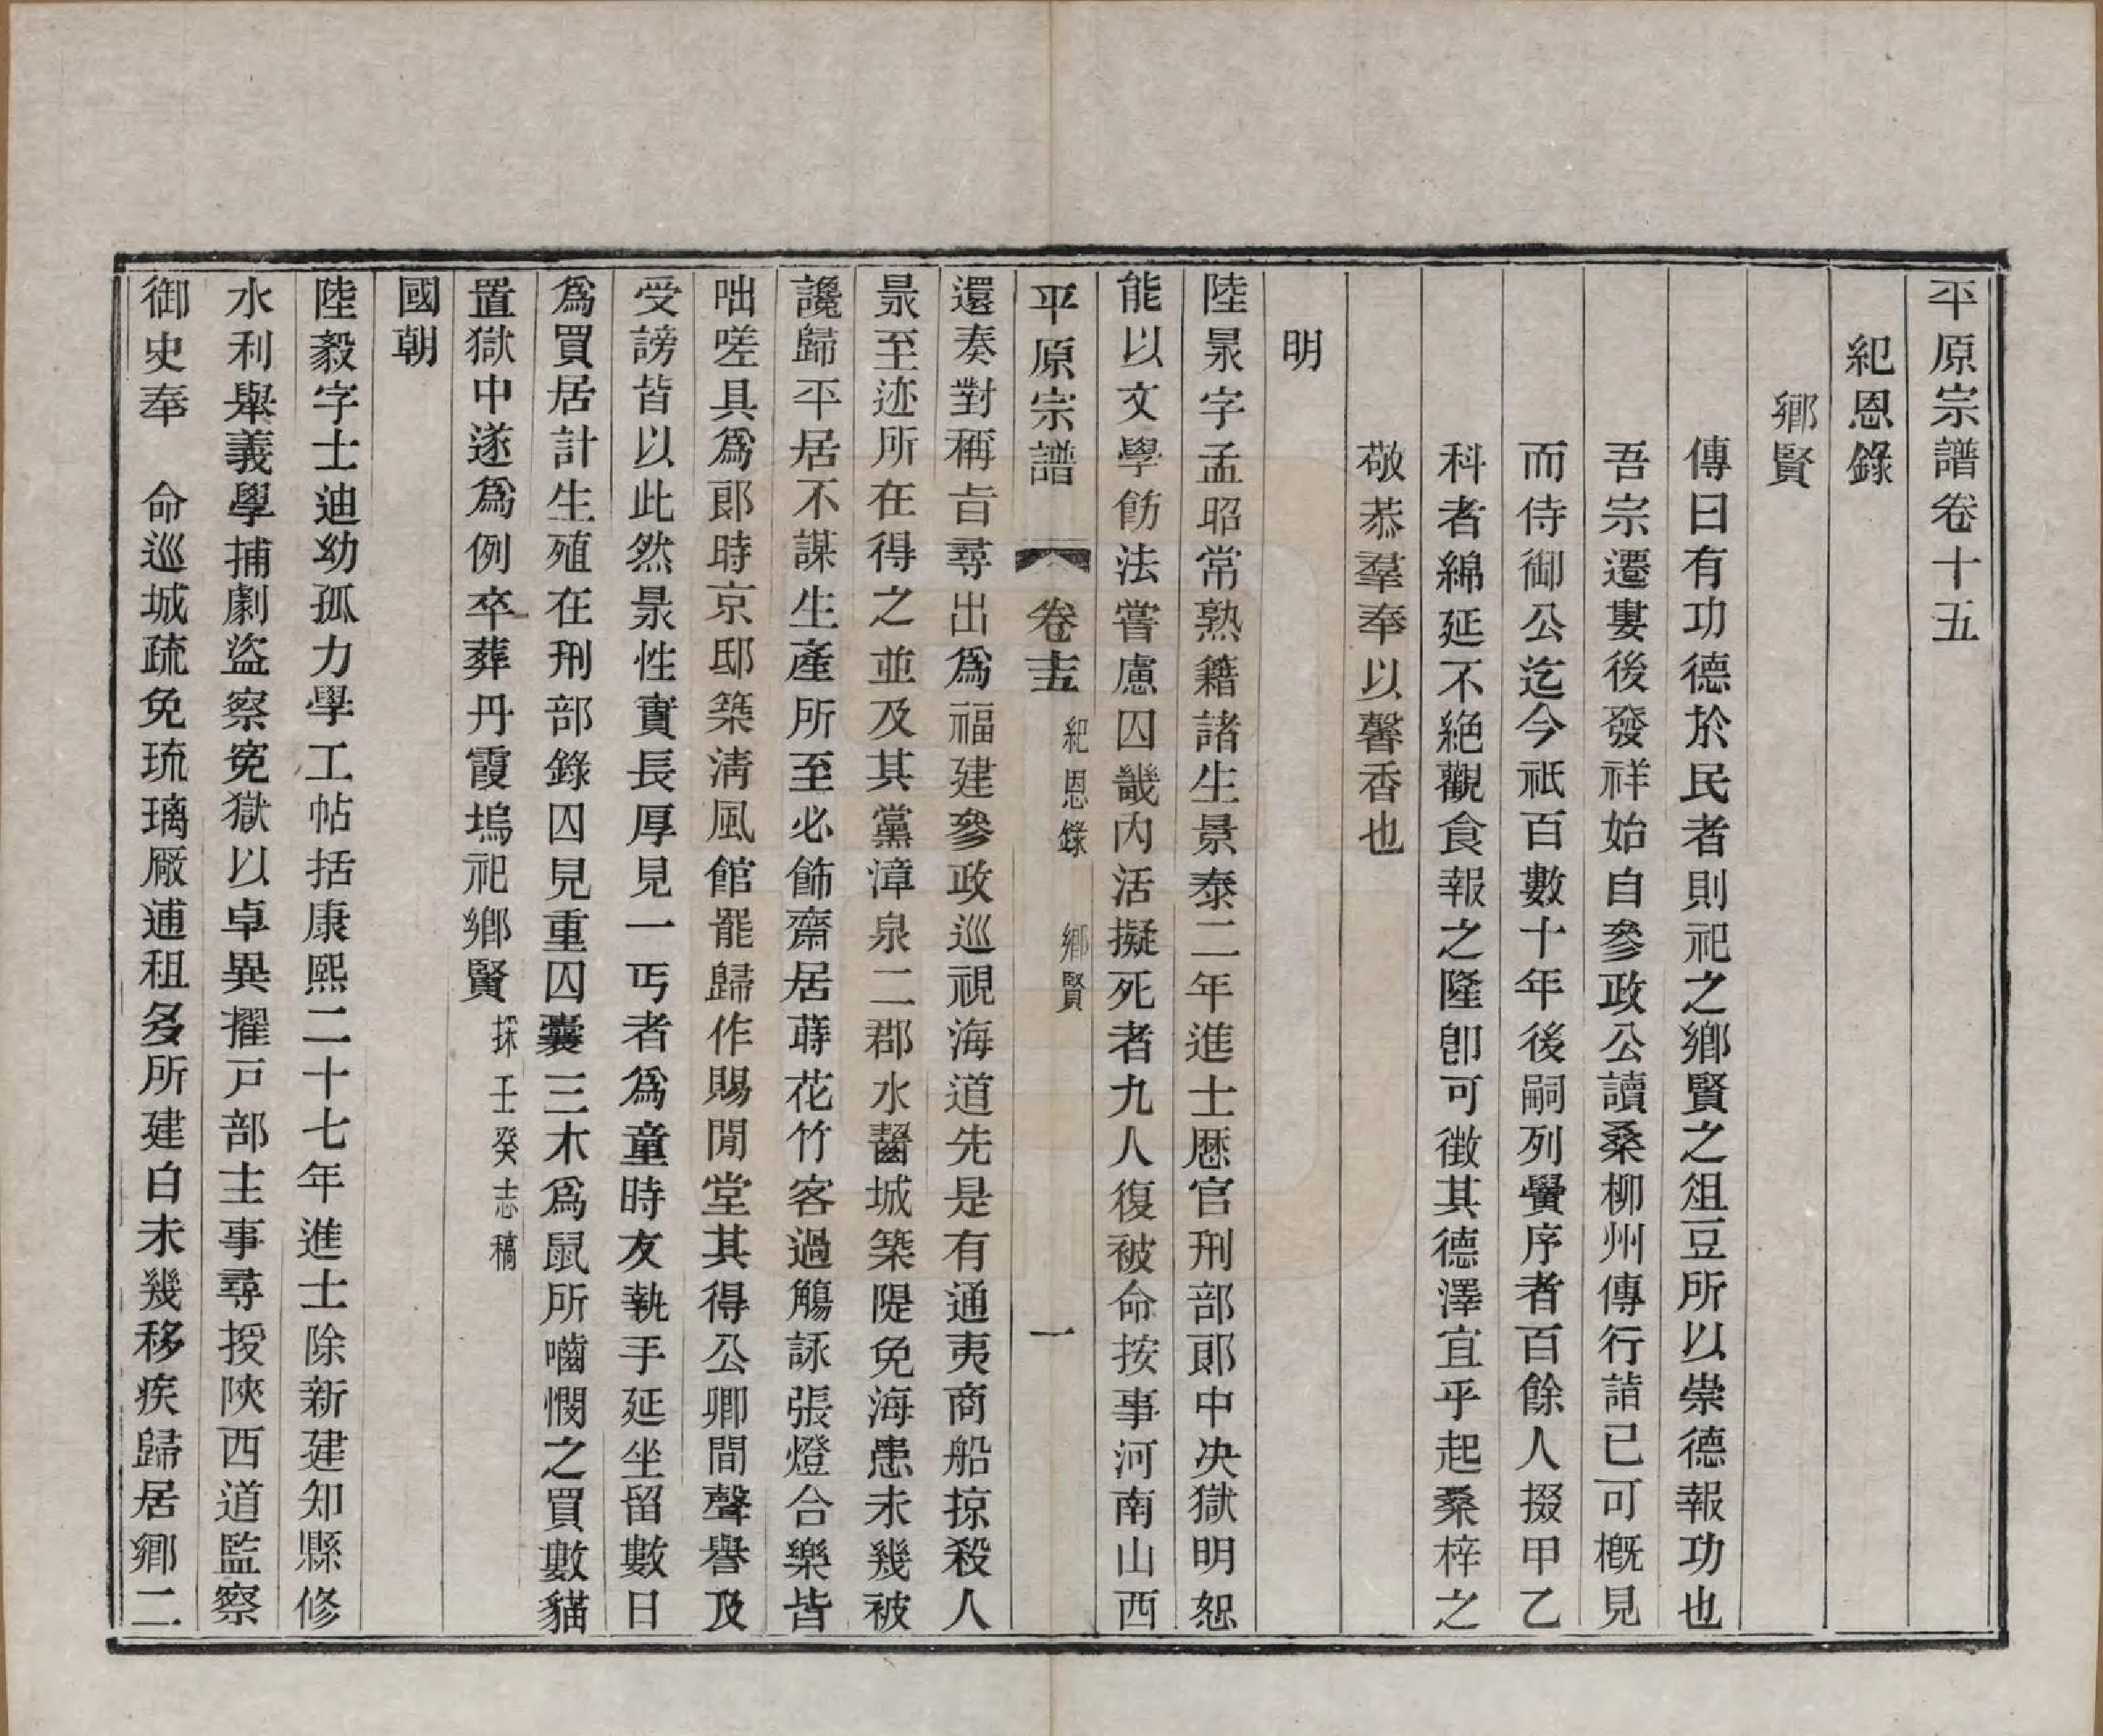 平原宗譜卷十五
紀恩錄
鄉賢
傳曰有功德於民者則祀之鄉賢之俎豆所以崇德報功也
吾宗遷婁後發祥始自參政公讀桑柳州傳行誼已可槪見
而侍御公迄今祇百數十年後嗣列黌序者百餘人掇甲乙
科者綿延不絕觀食報之隆卽可徵其德澤宜乎起桑梓之
敬恭羣奉以馨香也
明
陸杲字孟昭常熟籍諸生景泰二年進士歷官刑部郎中决獄明恕
能以文學飭法嘗慮囚畿內活擬死者九人復被命按事河南山西
平原宗譜 卷十五 紀恩錄 鄉賢 一
還奏對稱旨尋出爲福建參政巡視海道先是有通夷商船掠殺人
杲至迹所在得之並及其黨漳泉二郡水齧城築隄免海患未幾被
讒歸平居不謀生產所至必飾齋居蒔花竹客過觴詠張燈合樂皆
咄嗟具爲郎時京邸築淸風館罷歸作賜閒堂其得公卿間聲譽及
受謗皆以此然杲性實長厚見一丐者爲童時友執手延坐留數日
爲買居計生殖在刑部錄囚見重囚囊三木爲鼠所嚙憫之買數貓
置獄中遂爲例卒葬丹霞塢祀鄉賢 採壬癸志稿
國朝
陸毅字士迪幼孤力學工帖括康熙二十七年進士除新建知縣修
水利舉義學捕劇盜察冤獄以卓異擢戸部主事尋授陝西道監察
御史奉 命巡城疏免琉璃廠逋租多所建白未幾移疾歸居鄉二